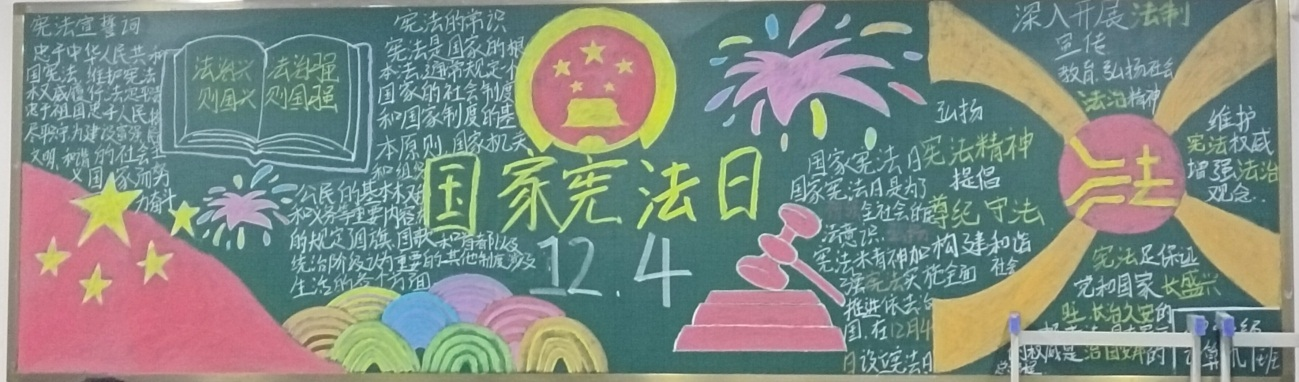 宪法宣誓词
忠于中华人民共和
国宪法,维护宪法
权威,履行法定职责
忠于祖国忠于人民
尽职守
文明,和谐的社会主
义国家而为
奋斗
法治兴 法治强
则国兴 则国强
宪法的常识
宪法是国家的根
本法,通常规定个
国家的社会制度
和国家制度的基
本原则,国家机关
公民的基本权
和义务等重要内容
的规定国旗,国歌和首都以及
统治阶级认为重要的其他制度涉及
生活的各个方面
国家宪法日
12.4
国家宪法日
国家宪法日是为了
全社会的宪
法意识
宪法术精神加
强宪法实施全面
推进依法治
国,在12月4
日设定宪法日
深入开展法制
宣传
教育,弘扬社会
法治精神
弘扬
宪法精神
提倡
尊纪守法
构建和谐
社会
法
维护
宪法权威
增强法治
观念..
宪法是保证
党和国家长盛兴
旺,长治久安的